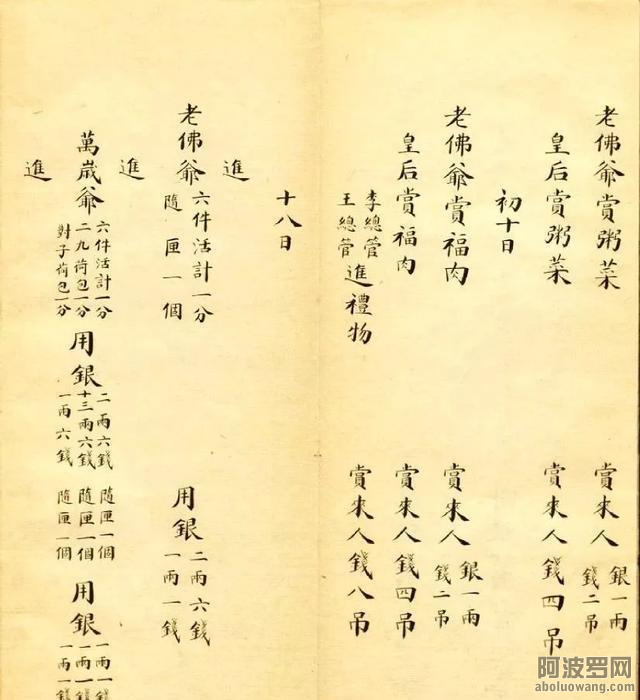 老佛爺賞粥菜 賞來人 銀一兩 錢二吊
皇后賞粥菜 賞來人錢四吊
初十日
老佛爺賞福肉 賞來人 銀一兩 錢二吊
皇后賞福肉 賞來人錢四吊
李總管 王總管 進禮物 賞來人錢八吊
十八日
進
老佛爺 六件活計一分 隨匣一個 用銀 二兩六錢 一兩一錢
進
萬歲爺 六件活計一分 二九荷包一分 對子荷包一分 用銀 二兩六錢 十三兩六錢 一兩六錢 隨匣一個 隨匣一個 隨匣一個 用銀 一兩一 一兩一 一兩一
進
阿波罗网
aboluowang.com